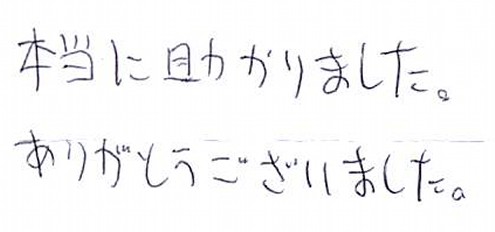 本当に助かりました。
ありがとうございました。